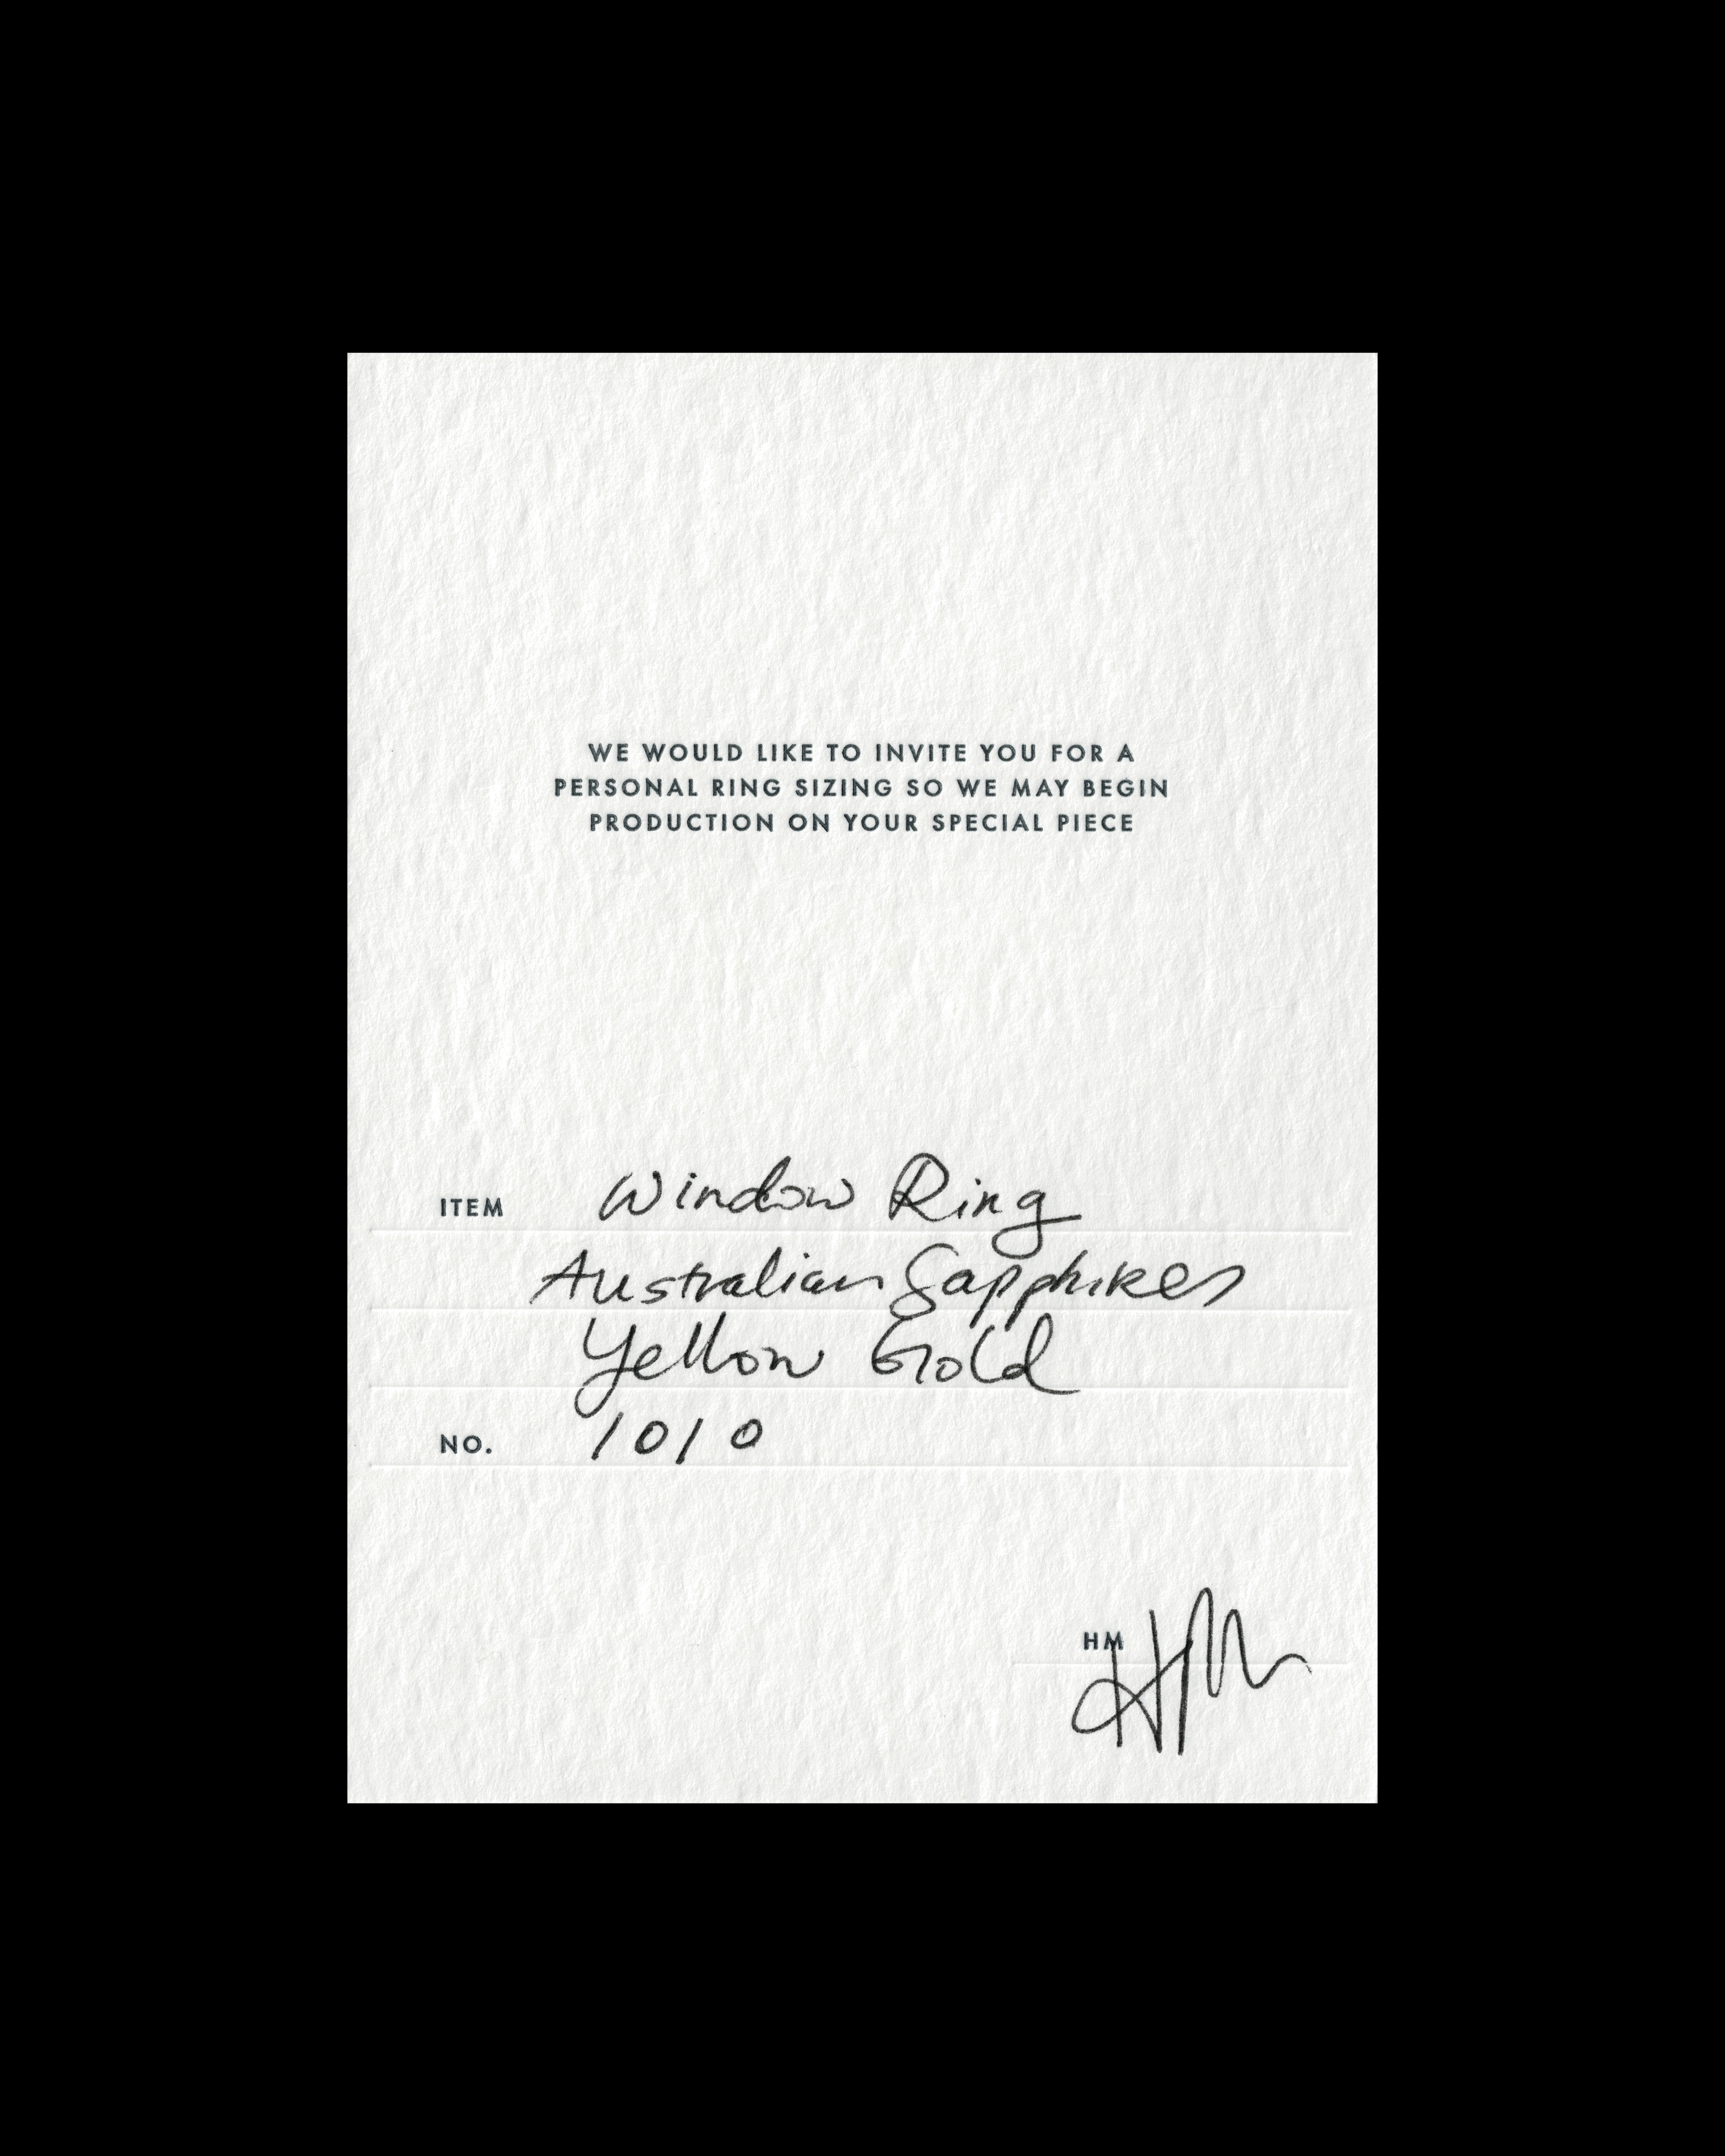 WE WOULD LIKE TO INVITE YOU FOR A
PERSONAL RING SIZING SO WE MAY BEGIN
PRODUCTION ON YOUR SPECIAL PIECE
ITEM Window Ring
Australian Sapphires
Yellow Gold
NO. 1010
HM